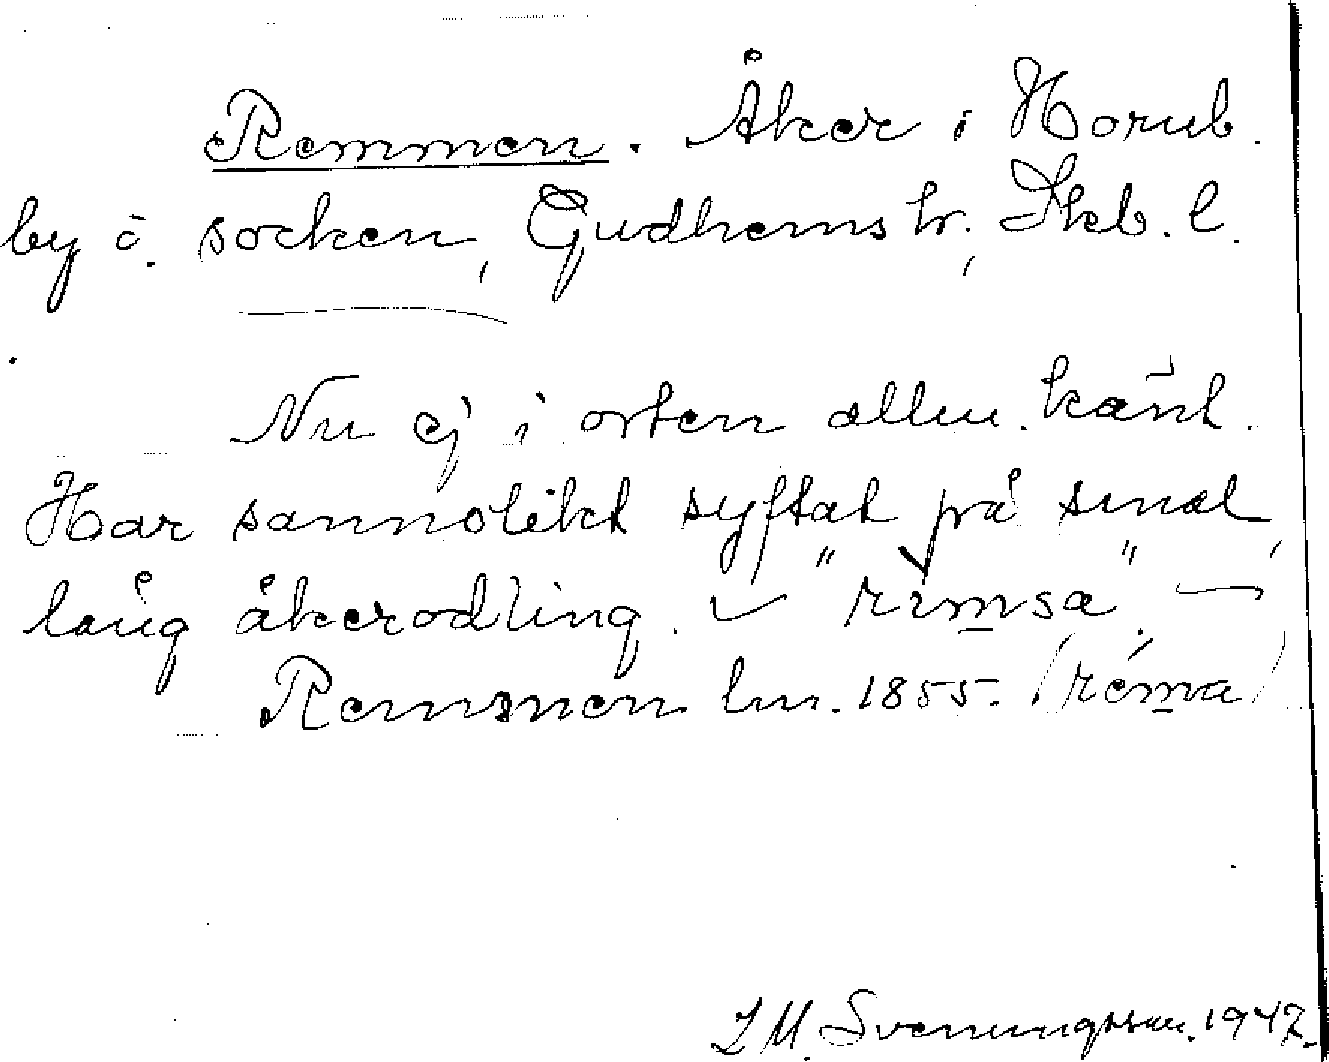 Remmen. Åker i Hornb.
by o. socken, Gudhems hr., Skb. l.
Nu ej i orten allm. känt.
Har sannolikt syftat på smal,
lång åkerodling. "rimsa"
Remmen lm. 1855. (réma)
J M. Svenungsson. 1947.